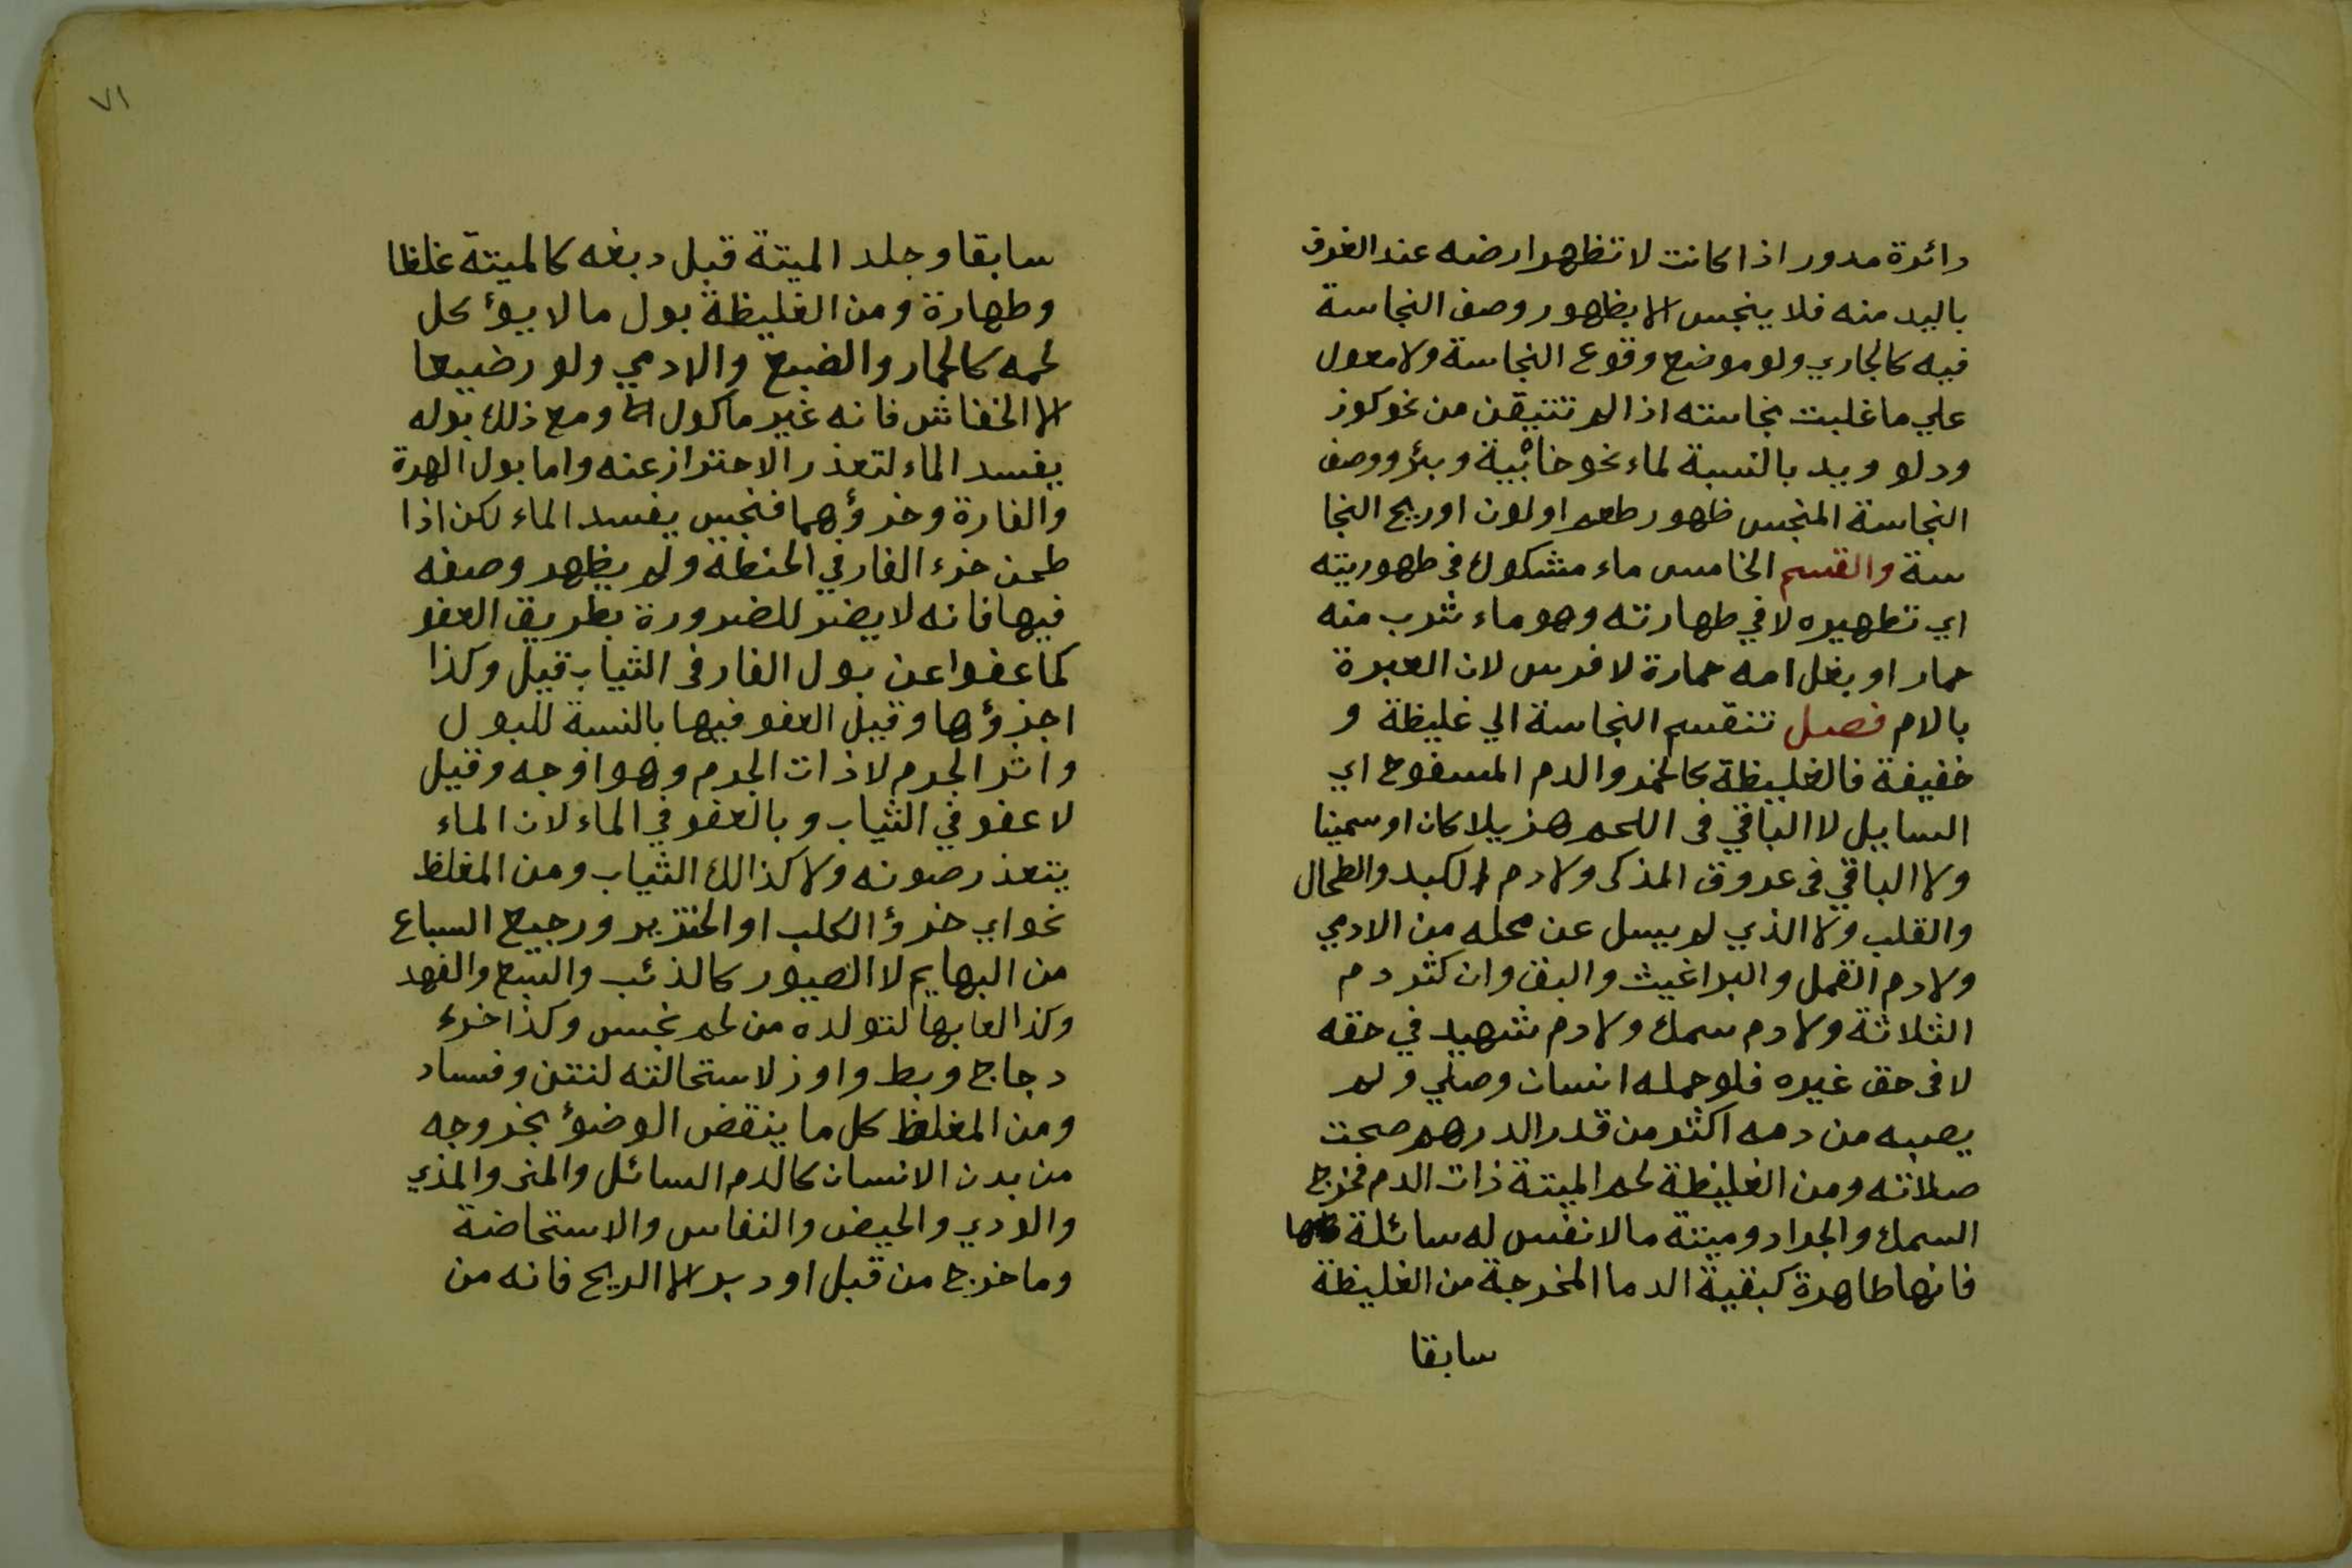 دائرة مدور اذا كانت لا تظهر ارضه عند الغرف
باليد منه فلا ينجس الا بظهور وصف النجاسة
فيه كالجاري ولو موضع وقوع النجاسة ولا معول
علي ما غلبت نجاسته اذا لم تتيقن من نحو كوز
ودلو ويد بالنسبة لماء نحو خابية وبئر ووصف
النجاسة المنجس ظهور طعم او لون او ريح النجا
سة والقسم الخامس ماء مشكوك في طهوريته
اي تطهيره لا في طهارته وهو ماء شرب منه
حمار او بغل امه حمارة لا فرس لان العبرة
بالام فصل تنقسم النجاسة الي غليظة و
خفيفة فالغليظة كالخمر والدم المسفوح اي
السايل لا الباقي في اللحم هزيلا كان او سمينا
ولا الباقي في عروق المذكى ولا دم الكبد والطحال
والقلب ولا الذي لم يسل عن محله من الادمي
ولا دم القمل والبراغيث والبق وان كثر دم
الثلاثة ولا دم سمك ولا دم شهيد في حقه
لا في حق غيره فلو حمله انسان وصلي ولم
يصبه من دمه اكثر من قدر الدرهم صحت
صلاته ومن الغليظة لحم الميتة ذات الدم فخرج
السمك والجراد وميتة ما لا نفس له سائلة
فانها طاهرة كبقية الدما المخرجة من الغليظة
سابقا
٧١
سابقا وجلد الميتة قبل دبغه كالميتة غلظا
وطهارة ومن الغليظة بول ما لا يؤكل
لحمه كالحمار والضبع والادمي ولو رضيعا
الا الخفاش فانه غير ماكول ومع ذلك بوله
يفسد الماء لتعذر الاحتراز عنه واما بول الهرة
والفارة وخرؤهما فنجس يفسد الماء لكن اذا
طحن خرء الفار في الحنطة ولم يظهر وصفه
فيها فانه لا يضر للضرورة بطريق العفو
كما عفوا عن بول الفار في الثياب قيل وكذا
اجزؤها وقيل العفو فيها بالنسبة للبول
واثر الجرم لا ذات الجرم وهو اوجه وقيل
لا عفو في الثياب وبالعفو في الماء لان الماء
يتعذر صونه ولا كذالك الثياب ومن المغلظ
نحو اي خرؤ الكلب او الخنزير ورجيع السباع
من البهايم لا الصيور كالذئب والسبع والفهد
وكذا لعابها لتولده من لحم نجس وكذا خرء
دجاج وبط واوز لاستحالته لنتن وفساد
ومن المغلظ كل ما ينقض الوضؤ بخروجه
من بدن الانسان كالدم السائل والمنى والمذي
والودي والحيض والنفاس والاستحاضة
وما خرج من قبل او دبر الا الريح فانه من